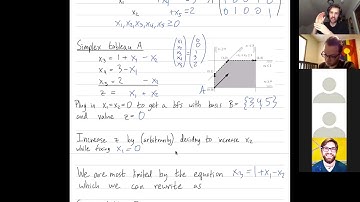 x₂ + x₅ = 2
x₁,x₂,x₃,x₄,x₅ ≥ 0
Simplex tableau A
x₃ = 1 + x₁ - x₂
x₄ = 3 - x₁
x₅ = 2 - x₂
z = x₁ + x₂
A
Plug in x₁=x₂=0 to get a bfs with basis B= {3,4,5}
and value z=0
Increase z by (arbitrarily) deciding to increase x₂
while fixing x₁=0
We are most limited by the equation x₃=1+x₁-x₂
which we can rewrite as